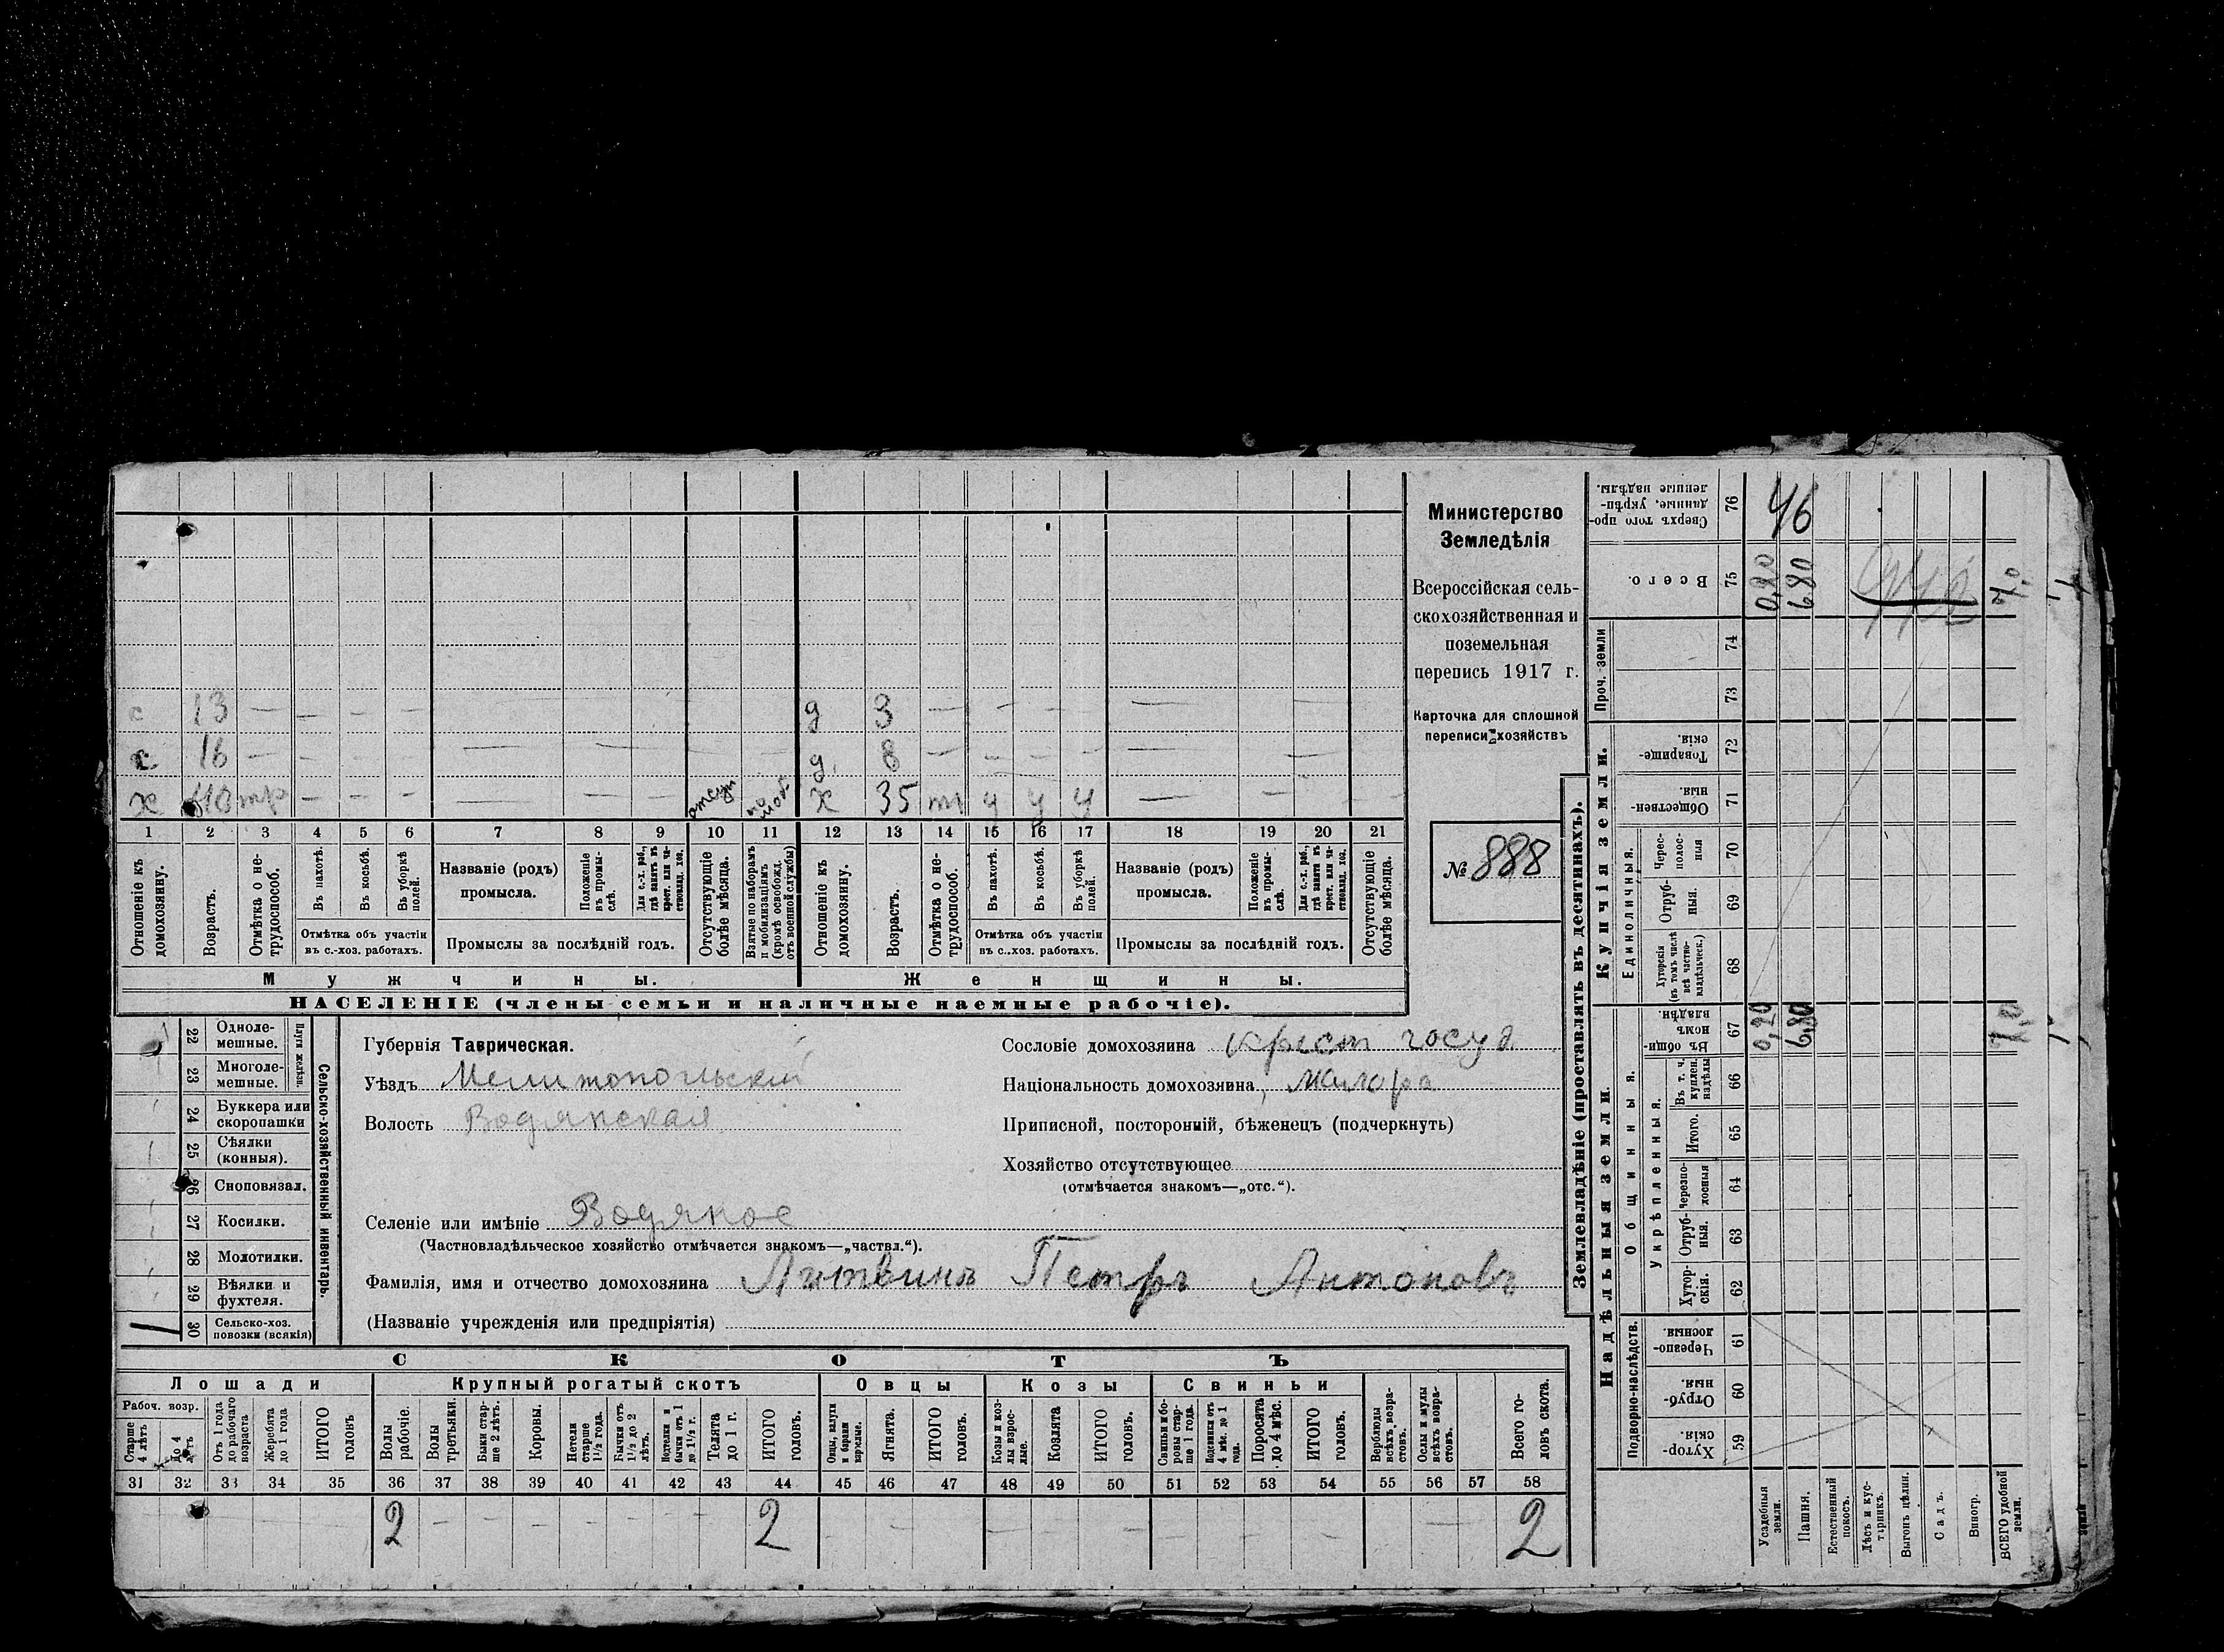 с 13 — — — — — — — д 3 — — — — — —
с 16 — — — — — — — д. 8 — — — — — —
х 40 тр — — — — — — отсут по моб. х 35 тр у у у — — — —
1 2 3 4 5 6 7 8 9 10 11 12 13 14 15 16 17 18 19 20 21
Отношеніе къ домохозяину.
Возрастъ.
Отмѣтка о не-трудоспособ.
Въ пахотѣ.
Въ косьбѣ.
Въ уборкѣ полей.
Отмѣтка объ участіи
въ с.-хоз. работахъ.
Названіе (родъ)
промысла.
Положеніе въ промы-слѣ.
Для с.-х. раб., гдѣ занятъ въ крест. или ча-стновлад. хоз.
Промыслы за послѣдній годъ.
Отсутствующіе болѣе мѣсяца.
Взятые по наборамъ и мобилизаціямъ (кромѣ освобожд. отъ военной службы)
Отношеніе къ домохозяину.
Возрастъ.
Отмѣтка о не-трудоспособ.
Въ пахотѣ.
Въ косьбѣ.
Въ уборкѣ полей.
Отмѣтка объ участіи
въ с.-хоз. работахъ.
Названіе (родъ)
промысла.
Положеніе въ промы-слѣ.
Для с.-х. раб., гдѣ занятъ въ крест. или ча-стновлад. хоз.
Промыслы за послѣдній годъ.
Отсутствующіе болѣе мѣсяца.
Мужчины. Женщины.
НАСЕЛЕНІЕ (члены семьи и наличные наемные рабочіе).
Министерство
Земледѣлія
Всероссійская сель-
скохозяйственная и
поземельная
перепись 1917 г.
Карточка для сплошной
переписи хозяйствъ
№ 888
Сельско-хозяйственный инвентарь.
Плуги желѣзн.
22 Одноле-
мешные.
23 Многоле-
мешные.
24 Буккера или
скоропашки
25 Сѣялки
(конныя).
26 Сноповязал.
27 Косилки.
28 Молотилки.
29 Вѣялки и
фухтеля.
30 Сельско-хоз.
повозки (всякія)
Губернія Таврическая.
Уѣздъ Мелитопольскій
Волость Водянская
Селеніе или имѣніе Водяное
(Частновладѣльческое хозяйство отмѣчается знакомъ—„частвл.“).
Фамилія, имя и отчество домохозяина Литвинъ Петръ Антоновъ
(Названіе учрежденія или предпріятія)
Сословіе домохозяина крест госуд
Національность домохозяина, малоро
Приписной, посторонній, бѣженецъ (подчеркнуть)
Хозяйство отсутствующее
(отмѣчается знакомъ—„отс.“).
СКОТЪ
Лошади Крупный рогатый скотъ Овцы Козы Свиньи
Рабоч. возр.
Старше 4 лѣтъ
До 4 лѣтъ
Отъ 1 года до рабочаго возраста
Жеребята до 1 года
ИТОГО головъ
Волы рабочіе.
Волы третьяки.
Быки стар-ше 2 лѣтъ.
Коровы.
Нетели старше 1½ года.
Бычки отъ 1½ до 2 лѣтъ.
Подтелки и бычки отъ 1 до 1½ г.
Телята до 1 г.
ИТОГО головъ.
Овцы, валухи и бараны взрослые.
Ягнята.
ИТОГО головъ.
Козы и коз-лы взрос-лые.
Козлята
ИТОГО головъ.
Свиньи и бо-ровы стар-ше 1 года.
Подсвинки отъ 4 мѣс. до 1 года.
Поросята до 4 мѣс.
ИТОГО головъ.
Верблюды всѣхъ возра-стовъ.
Ослы и мулы всѣхъ возра-стовъ.
Всего го-ловъ скота.
31 32 33 34 35 36 37 38 39 40 41 42 43 44 45 46 47 48 49 50 51 52 53 54 55 56 57 58
2 — — — — — — — 2 — — — — — — 2
Землевладѣніе (проставлять въ десятинахъ).
Надѣльныя земли. Купчія земли. Проч. земли
Подворно-наслѣдств.
Общинныя.
Укрѣпленныя.
Единоличныя.
Сверхъ того про-данные, укрѣп-ленные надѣлы. 76 46
Всего. 75 0,20 6 80 7,0
74
73
Товарище-скія. 72
Обществен-ныя. 71
Черес-полос-ныя 70
Отруб-ныя. 69
Хуторскія (въ томъ числѣ всѣ частно-владѣльческ.) 68
Въ общи-номъ владѣн. 67 0,20 6,80 7,0
Въ т. ч. куплен. надѣлы 66
Итого. 65
Черезпо-лосныя 64
Отруб-ныя. 63
Хутор-скія. 62
Черезпо-лосныя 61
Отруб-ныя. 60
Хутор-скія. 59
Усадебныя земли.
Пашня.
Естественный покосъ.
Лѣсъ и кус-тарникъ.
Выгонъ цѣлин.
Садъ.
Виногр.
ВСЕГО удобной земли.